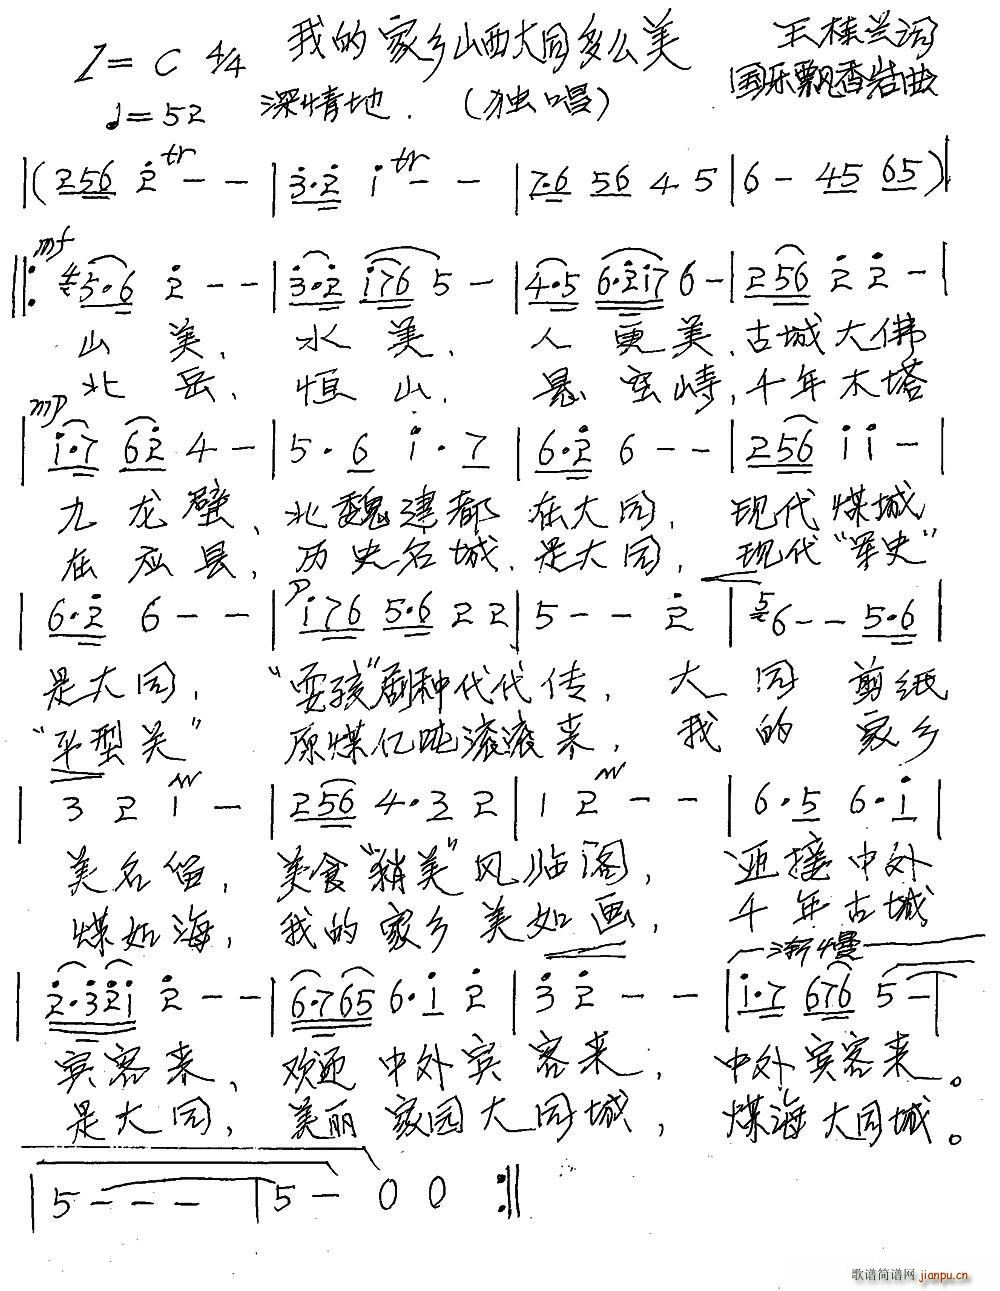 我的家乡山西大同多么美 王桂兰词
1=C 4/4 国乐飘香岩曲
♩=52 深情地. (独唱)
|(256 2 tr - - | 3·2 1 tr - - | 7·6 56 4 5 | 6 - 45 65)|
mf
||: 4 5·6 2 - - | 3·2 176 5 - | 4·5 6·217 6 - | 256 2 2 - |
山 美、 水 美、 人 更美、古城大佛
北 岳、 恒 山、 悬空寺,千年木塔
mp
| 1·7 62 4 - | 5·6 1·7 | 6·2 6 - - | 256 1 1 - |
九龙壁、北魏建都在大同, 现代煤城
在应县, 历史名城是大同, 现代“军史”
| 6·2 6 - - | p 176 5·6 2 2 | 5 - - 2 | 5 6 - - 5·6 |
是大同, “耍孩”剧种代代传, 大 同 剪纸
“平型关” 原煤亿吨滚滚来, 我 的 家乡
| 3 2 1 - | 256 4·3 2 | 1 2 - - | 6·5 6·1 |
美名留, 美食“稍美”风临阁, 迎接中外
煤如海, 我的家乡美如画, 千年古城
渐慢
| 2·321 2 - - | 6·765 6·1 2 | 3 2 - - | 1·7 676 5 - |
宾客来、 欢迎中外宾客来, 中外宾客来。
是大同, 美丽家园大同城, 煤海大同城。
| 5 - - - | 5 - 0 0 :||
歌谱简谱网 jianpu.cn